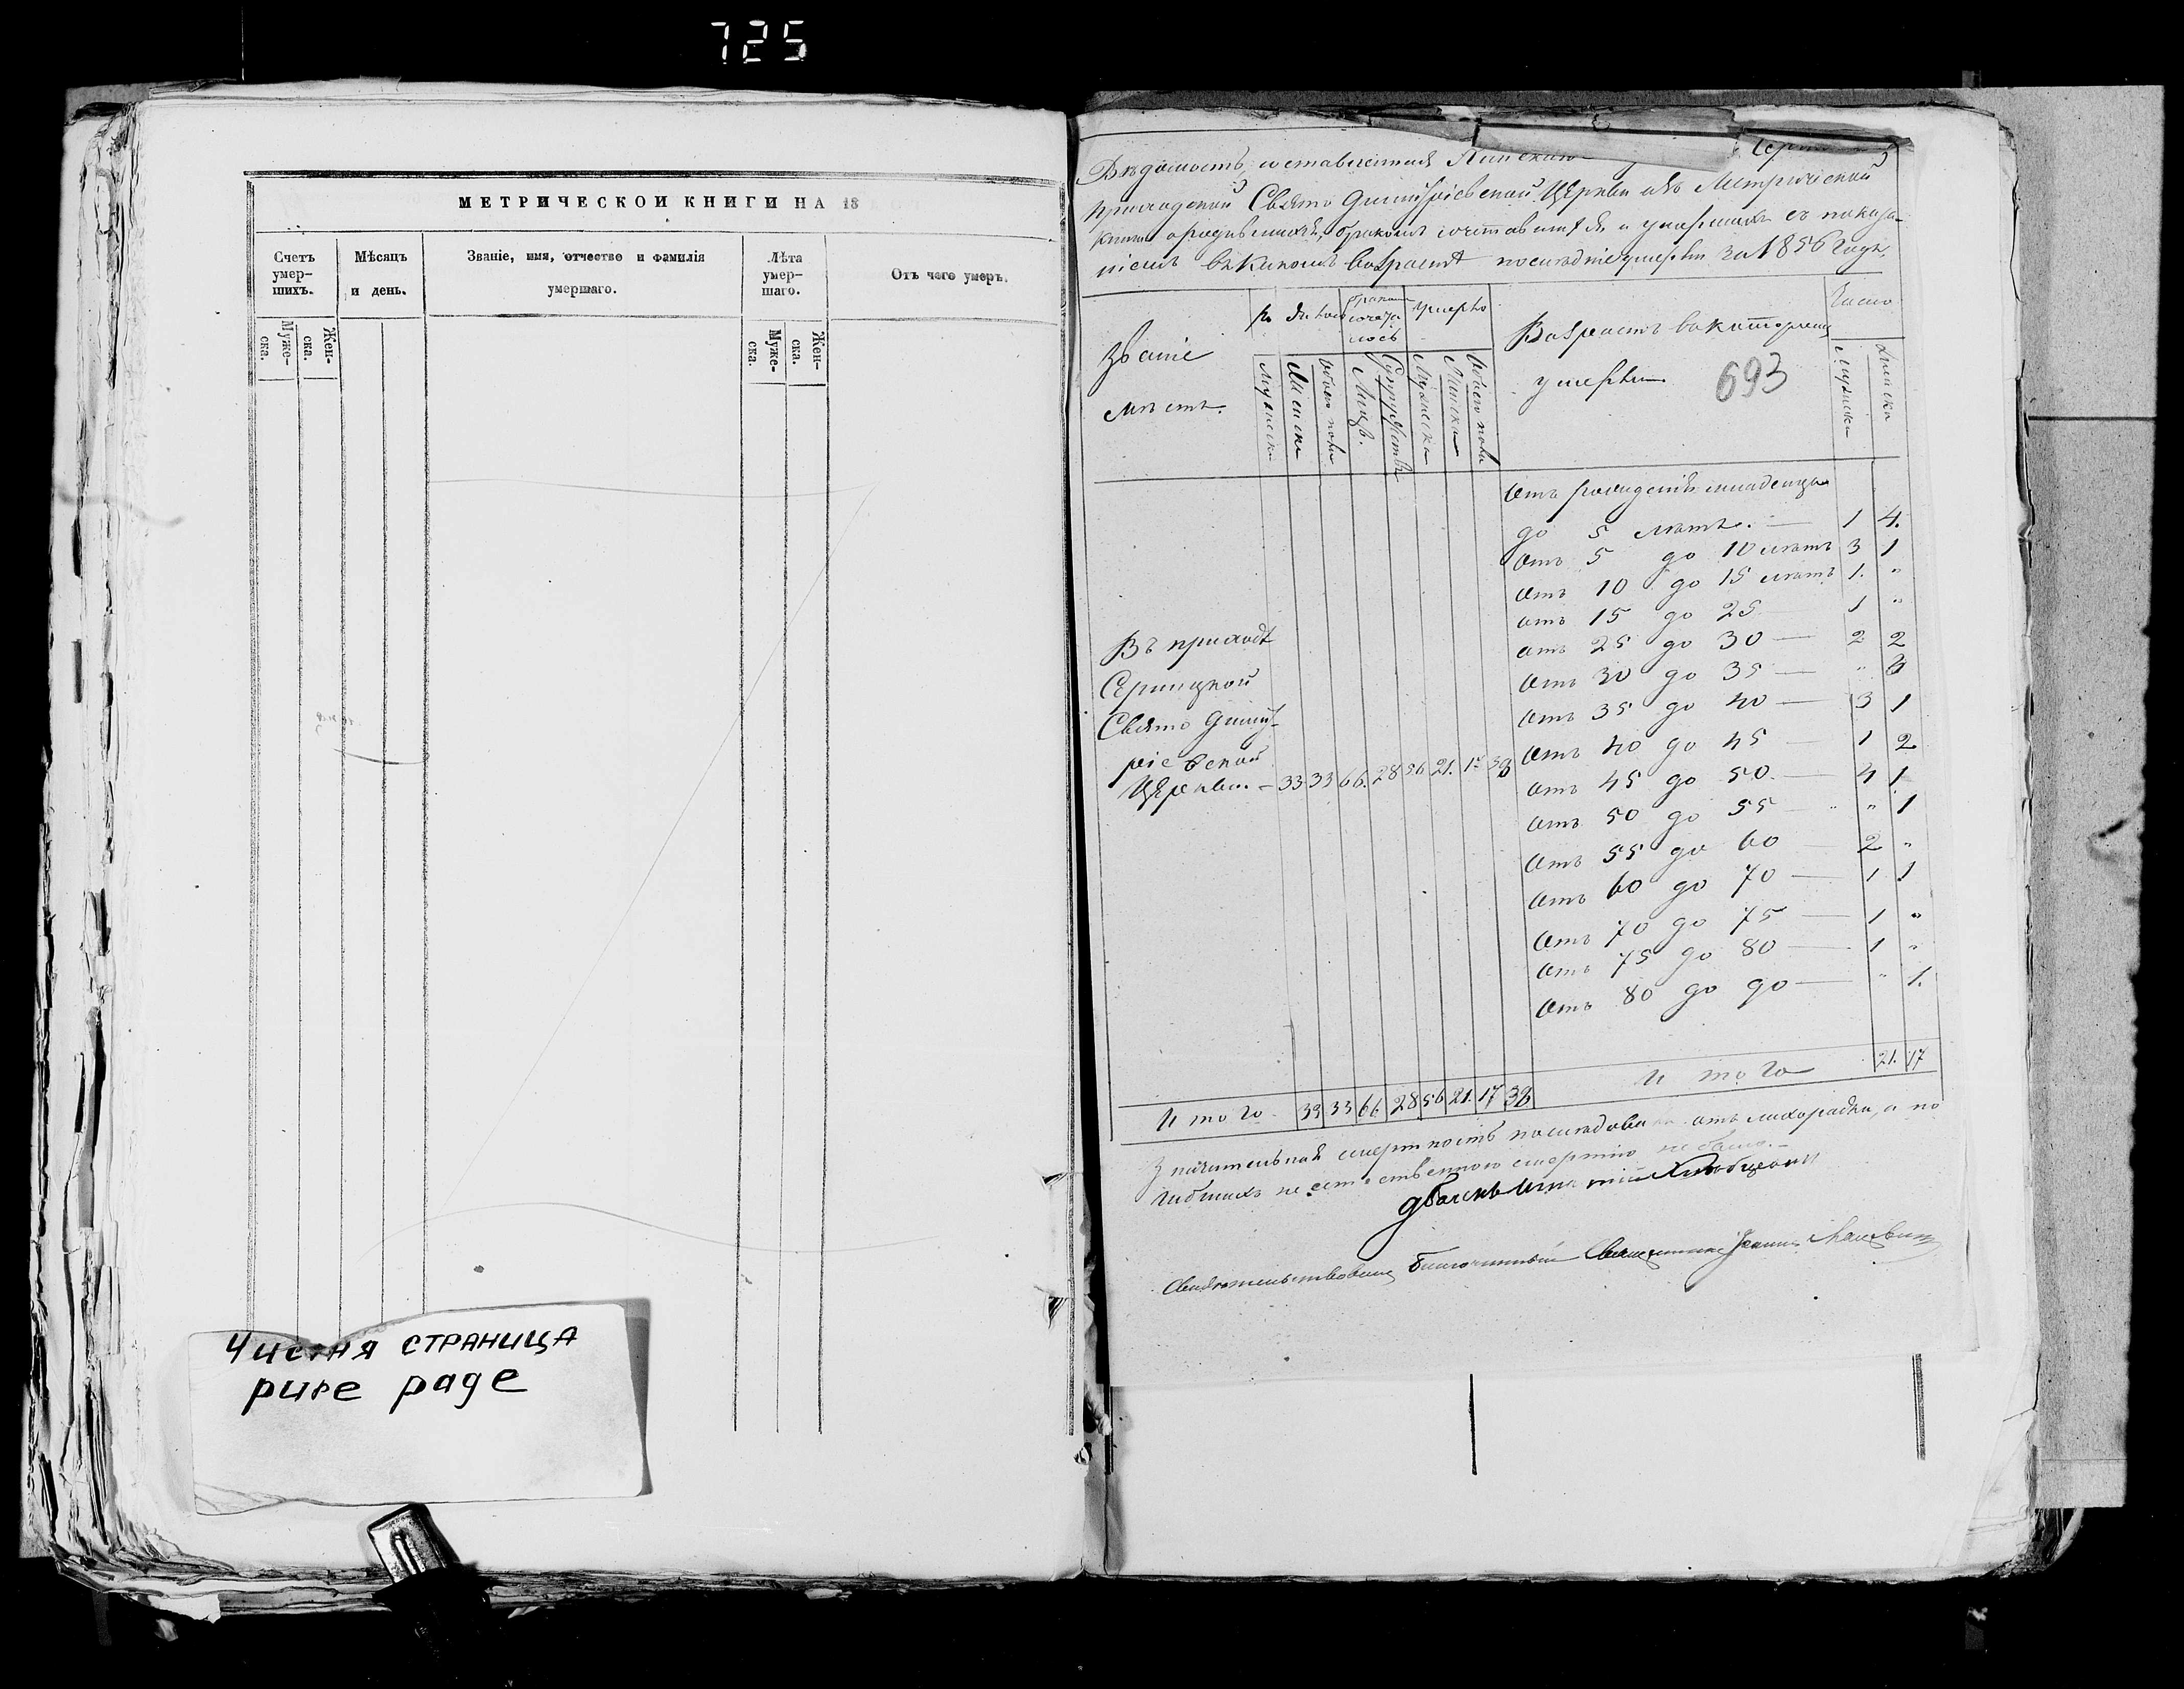 725
МЕТРИЧЕСКОЙ КНИГИ НА 18
Счетъ умер-шихъ.
Мѣсяцъ и день.
Званіе, имя, отчество и фамилія умершаго.
Лѣта умер-шаго.
Отъ чего умеръ.
Муже-ска.
Жен-ска.
Муже-ска.
Жен-ска.
Чистая СТРАНИЦА
pure page
Вѣдомость, составленная
приходской Свято Димитріевской Церкви изъ Метрической
книги о родившихся, бракомъ сочетавшихся и умершихъ съ показа-
ніемъ въ какомъ возрастѣ послѣдніе умерли за 1856 годъ.
Званіе мѣстъ.
родилось
бракомъ сочета лось
умерло
Возрастъ въ которомъ умерли
Число
693
Мужеска
Женска
Обоего пола
Лицъ.
Супружествъ
Мужеска
Женска
Обоего пола
Мужеска
Женска
Отъ рожденія младенцы
до 5 лѣтъ. — 1 4.
Отъ 5 до 10 лѣтъ 3 1
Отъ 10 до 15 лѣтъ 1. "
Отъ 15 до 25 1 "
Отъ 25 до 30 — 2 2
Отъ 30 до 35 — "
Отъ 35 до 40 — 3 1
Отъ 40 до 45 — 1 2
Отъ 45 до 50 — 4 1
Отъ 50 до 55 — " 1
Отъ 55 до 60 — 2 "
Отъ 60 до 70 — 1 1
Отъ 70 до 75 — 1 "
Отъ 75 до 80 — 1 "
Отъ 80 до 90 — " 1.
Въ приходѣ
Свято Димит-
ріевской
Церкви. — 33 33 66. 28 56 21.
Итого 21. 17
Итого 33 33 66 28 56 21. 17 38
Значительная смертность послѣдовала отъ лихорадки, а по
гибшихъ не естественною смертію не было. —
Свидѣтельствовалъ Благочинный Священникъ Іоаннъ